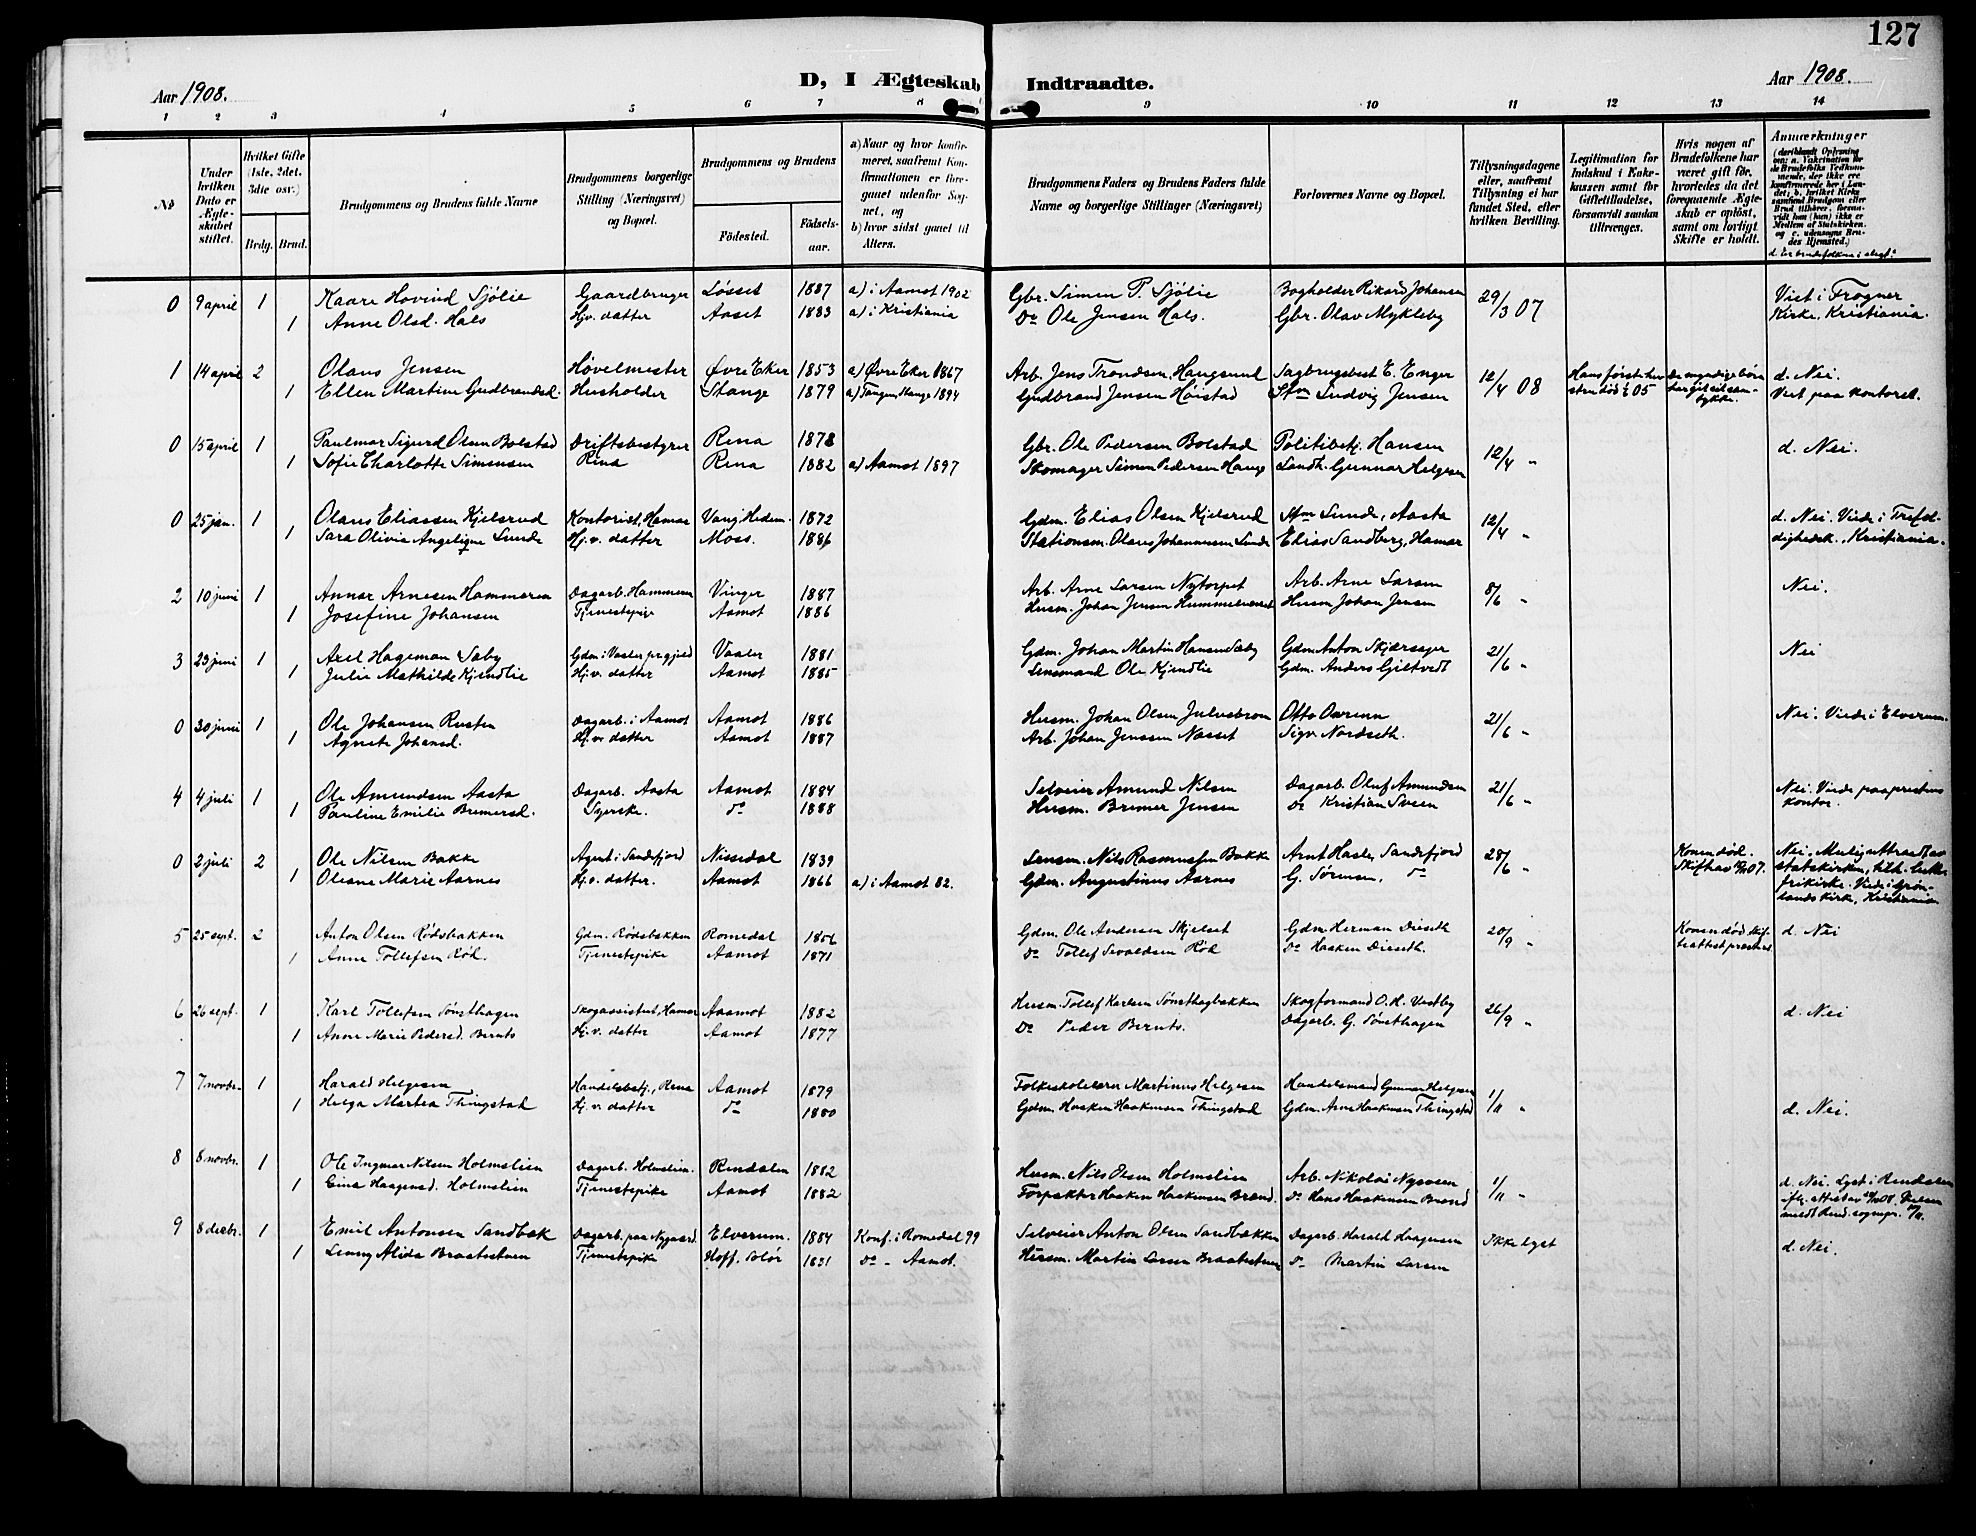 127
Aar 1908.
D, I Ægteskab Indtraadte.
Aar 1908.
1 2 3 4 5 6 7 8 9 10 11 12 13 14
No
Under hvilken Dato er Ægteskabet stiftet.
Hvilket Gifte (1ste, 2det, 3die osv.)
Brdg. Brud.
Brudgommens og Brudens fulde Navne
Brudgommens borgerlige Stilling (Næringsvei) og Bopæl.
Brudgommens og Brudens
Fødested.
Fødselsaar.
a) Naar og hvor konfirmeret, saafremt Konfirmationen er foregaaet udenfor Sognet, og
b) hvor sidst gaaet til Alters.
Brudgommens Faders og Brudens Faders fulde Navne og borgerlige Stillinger (Næringsvei)
Forlovernes Navne og Bopæl.
Tillysningsdagene eller, saafremt Tillysning ei har fundet Sted, efter hvilken Bevilling.
Legitimation for Indskud i Enkekassen samt for Giftetilladelse, forsaavidt saadan tiltrænges.
Hvis nogen af Brudefolkene har været gift før, hvorledes da det foregaaende Ægteskab er opløst, samt om lovligt Skifte er holdt.
Anmærkninger
(deriblandt Oplysning om: a. Vakcination for de Brudefolks Vedkommende, der ikke ere konfirmerede her i Landet; b. hvilket Kirkesamfund Brudgom eller Brud tilhører, forsaavidt han (hun) ikke er Medlem af Statskirken, og c. udensogns Brudes Hjemsted.)
d. Er brudefolkene i slegt?
0 9 april 1 Kaare Hovind Sjölie Gaardbruger Løsset 1887 a) i Aamot 1902 Gbr. Simen P. Sjölie Bogholder Rikard Johansen 29/3 07 Viet i Frogner
1 Anne Olsd. Hals Hjv. datter Aaset 1883 a) i Kristiania Do Ole Jensen Hals. Gbr. Olav Mykleby Kirke, Kristiania.
1 14 april 2 Olaus Jensen Høvelmester Øvre Eker 1853 a) Øvre Eker 1867 Arb. Jens Trondsen, Haugsund Sagbrugsbest. E. Enger 12/4 08 d. Nei.
1 Ellen Martine Gudbrandsd. Husholder Stange 1879 a) Tangen, Stange 1894 Gudbrand Jensen Hoistad Stm Ludvig Jensen Viet paa kontoret.
0 15 april 1 Paulmar Sigurd Olsen Bolstad Driftsbestyrer Rena 1878 Gbr. Ole Pedersen Bolstad Politibetj. Hansen 12/4 " d. Nei.
1 Sofie Charlotte Simensen Rena Rena 1882 a) Aamot 1897 Skomager Simen Pedersen Haugs Landh. Gunnar Helgesen
0 25 jan. 1 Olaus Eliassen Kjelsrud Kontorist, Hamar Vang, Hedem. 1872 Gdm. Elias Olsen Kjelsrud Stm Lunde, Aasta 12/4 " d. Nei. Viede i Trefol-
1 Sara Olivia Angeligne Lunde Hj.v. datter Moss. 1886 Stationsm. Olaus Johannesen Lunde Elias Sandberg, Hamar dighedsk., Kristiania.
2 10 juni 1 Annar Arnesen Hammeren Dagarb. Hammeren Vinger 1887 Arb. Arne Larsen Nytorpet Arb. Arne Larsen 8/6 " Nei.
1 Josefine Johansen Tjenestepige Aamot 1886 Husm. Johan Jensen Husm. Johan Jensen
3 23 juni 1 Axel Hageman Sæby Gdm. i Vaaler prgjeld Vaaler 1881 Gdm. Johan Martin Hansen Sæby Gdm. Anton Skjærager 21/6 " Nei
1 Julie Mathilde Kjendlie Hj.v. datter Aamot 1885 Lensmand Ole Kjendlie Gdm. Anders Giltvedt
0 30 juni 1 Ole Johansen Rusten Dagarb. i Aamot Aamot 1886 Husm. Johan Olsen Julusbroen Otto Ovrenn 21/6 " Nei. Viede i Elverum.
1 Agnete Johansd. Hj.v. datter Aamot 1887 Arb. Johan Jenssen Næsset Sigv. Nordseth.
4 4 juli 1 Ole Amundsen Aasta Dagarb. Aasta Aamot 1884 Selveier Amund Nilsen Dagarb. Oluf Amundsen 21/6 " Nei. Viede paa prestens
1 Pauline Emilie Bremersd. Syerske. do 1888 Husm. Bremer Jensen Do Kristian Sveen kontor.
0 2 juli 2 Ole Nilsen Bakke Agent i Sandefjord Nissedal 1839 Lensm. Nils Rasmussen Bakke Arnt Hasle, Sandefjord 28/6 " Konen död.
1 Oliane Marie Aarnes Hj.v. datter. Aamot 1866 a) i Aamot 82. Gdm. Augustinus Aarnes G. Sörensen, do
5 25 sept. 2 Anton Olsen Rødsbakken Gdm. Rødsbakken Romedal 1856 Gdm. Ole Andersen Skjelset Gdm. Herman Diseth 20/9 " d. Nei
1 Anne Tollefsen Röh. Tjenestepike Aamot 1871 Do Tollef Sivaldsen Röh Do Haaken Diseth.
6 26 sept. 1 Karl Tollefsen Sønsthagen Skogassistent, Hamar Aasmot 1882 Husm. Tollef Karlsen Sønsthagbakken Skogformand O.H. Vestby 26/9 " d. Nei
1 Anne Marie Pedersd. Bernts Hj.v. datter Aamot 1877 Do Peder Bernts. Dagarb. G. Sønsthagen
7 7 novbr. 1 Harald Helgesen Handelsbetj., Rena Aamot 1879 Folkeskolelærer Martinus Helgesen Handelsmand Gunnar Helgesen 1/11 "
1 Helga Martea Thingstad Hj.v. datter do 1880 Gdm. Haaken Haakensen Thingstad Gdm. Arne Haakensen Thingstad d. Nei.
8 8 novbr. 1 Ole Ingmar Nilsen Holmslien Dagarb. Holmslien. Rendalen 1882 Husm. Nils Olsen Holmslien Arb. Nikolai Nysveen 1/11 " d. Nei. Lyst i Rendalen
1 Eina Haagensd. Holmslien Tjenestepike Aamot 1882 Forpakter Haaken Haakensen Brænd. Do Hans Haakensen Brænd
9 8 decbr. 1 Emil Antonsen Sandbæk Dagarb. paa Nygaard. Elverum. 1884 Konf. i Romedal 99 Selveier Anton Olsen Sandbækken Dagarb. Harald Haagensen Ikke lyst d. Nei.
1 Linny Alida Braatestuen Tjenestepike Hoff. Solør 1881 Do - Aamot. Husm. Martin Larsen Braatestuen do Martin Larsen